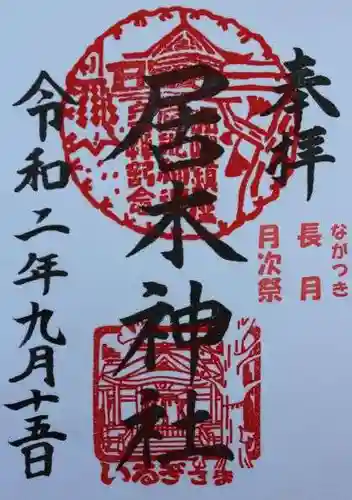 奉拝
ながつき
長月
月次祭
居木神社
いるぎさま
令和二年九月十五日